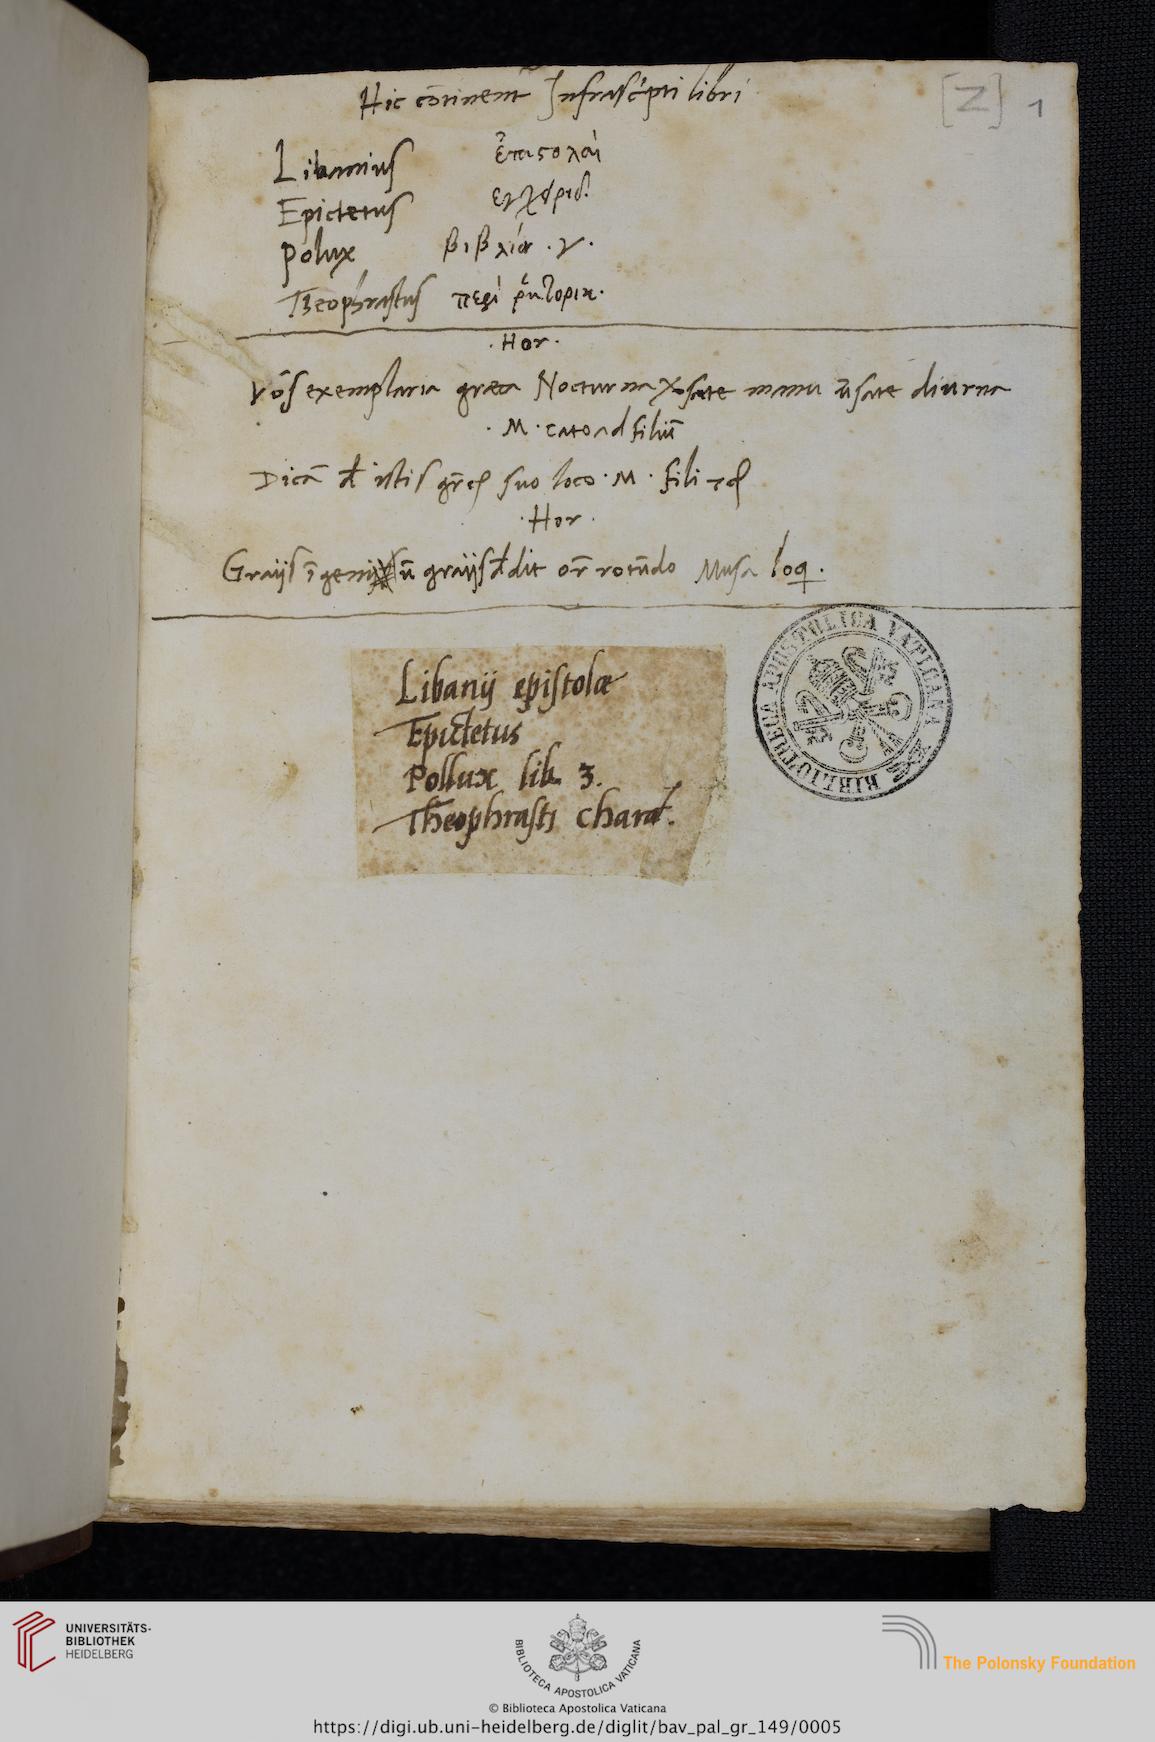 Hic cōtinent̄ Infrascipti libri
[Z] 1
Libanius ἐπιςολαὶ
Epictetus εγχειριδ.
Polux βιβλία . γ .
Theophrastus περὶ ῥητορικ.
. Hor .
Vōs exemplaria græca Nocturna manu diurna
. M . cato ad filiū
Dicā d istis suo loco . M . fili
. Hor .
Graijs īgeniū graijs dedit rotūdo Musa loq .
Libanij epistolæ
Epictetus
Pollux lib. 3.
Theophrasti charact.
BIBLIOTHECA APOSTOLICA VATICANA
UNIVERSITÄTS-
BIBLIOTHEK
HEIDELBERG
BIBLIOTECA APOSTOLICA VATICANA
The Polonsky Foundation
© Biblioteca Apostolica Vaticana
https://digi.ub.uni-heidelberg.de/diglit/bav_pal_gr_149/0005